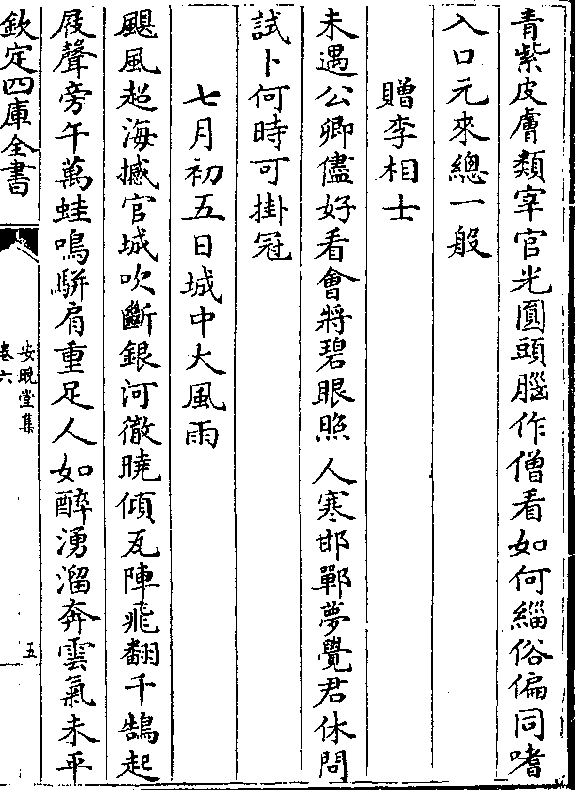 青紫皮膚類宰官光圓頭腦作僧看如何緇俗偏同嗜
入口元來總一般
贈李相士
未遇公卿儘好看會將碧眼照人寒邯鄲夢覺君休問
試卜何時可掛冠
七月初五日城中大風雨
颶風超海撼官城吹斷銀河徹曉傾瓦陣飛翻千鵠起
屐聲旁午萬蛙鳴駢肩重足人如醉湧溜奔雲氣未平
欽定四庫全書
安晚堂集
卷六
五